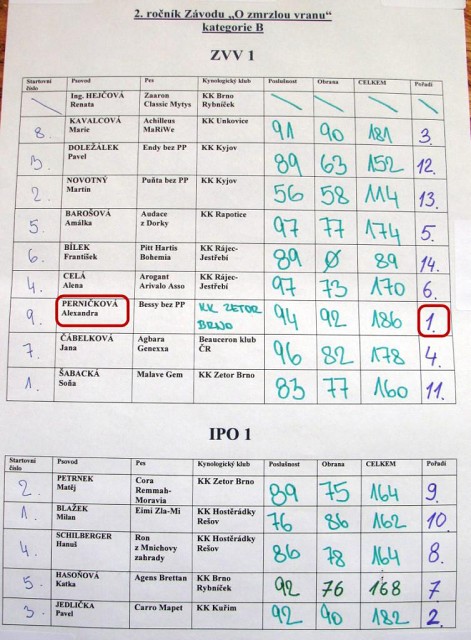 2. ročník Závodu „O zmrzlou vranu“
kategorie B
ZVV 1
Startovní číslo Psovod Pes Kynologický klub Poslušnost Obrana CELKEM Pořadí
Ing. HEJČOVÁ Renata Zaaron Classic Mytys KK Brno Rybníček
8. KAVALCOVÁ Marie Achilleus MaRiWe KK Unkovice 91 90 181 3.
3. DOLEŽÁLEK Pavel Endy bez PP KK Kyjov 89 63 152 12.
2. NOVOTNÝ Martin Puňta bez PP KK Kyjov 56 58 114 13.
5. BAROŠOVÁ Amálka Audace z Dorky KK Rapotice 97 77 174 5.
6. BÍLEK František Pitt Hartis Bohemia KK Rájec-Jestřebí 89 Ø 89 14.
4. CELÁ Alena Arogant Arivalo Asso KK Rájec-Jestřebí 97 73 170 6.
9. PERNIČKOVÁ Alexandra Bessy bez PP KK ZETOR BRNO 94 92 186 1.
7. ČÁBELKOVÁ Jana Agbara Genexxa Beauceron klub ČR 96 82 178 4.
1. ŠABACKÁ Soňa Malave Gem KK Zetor Brno 83 77 160 11.
IPO 1
Startovní číslo Psovod Pes Kynologický klub Poslušnost Obrana CELKEM Pořadí
2. PETRNEK Matěj Cora Remmah-Moravia KK Zetor Brno 89 75 164 9.
1. BLAŽEK Milan Eimi Zla-Mi KK Hostěrádky Rešov 76 86 162 10.
4. SCHILBERGER Hanuš Ron z Mnichovy zahrady KK Hostěrádky Rešov 86 78 164 8.
5. HASOŇOVÁ Katka Agens Brettan KK Brno Rybníček 92 76 168 7
3. JEDLIČKA Pavel Carro Mapet KK Kuřim 92 90 182 2.